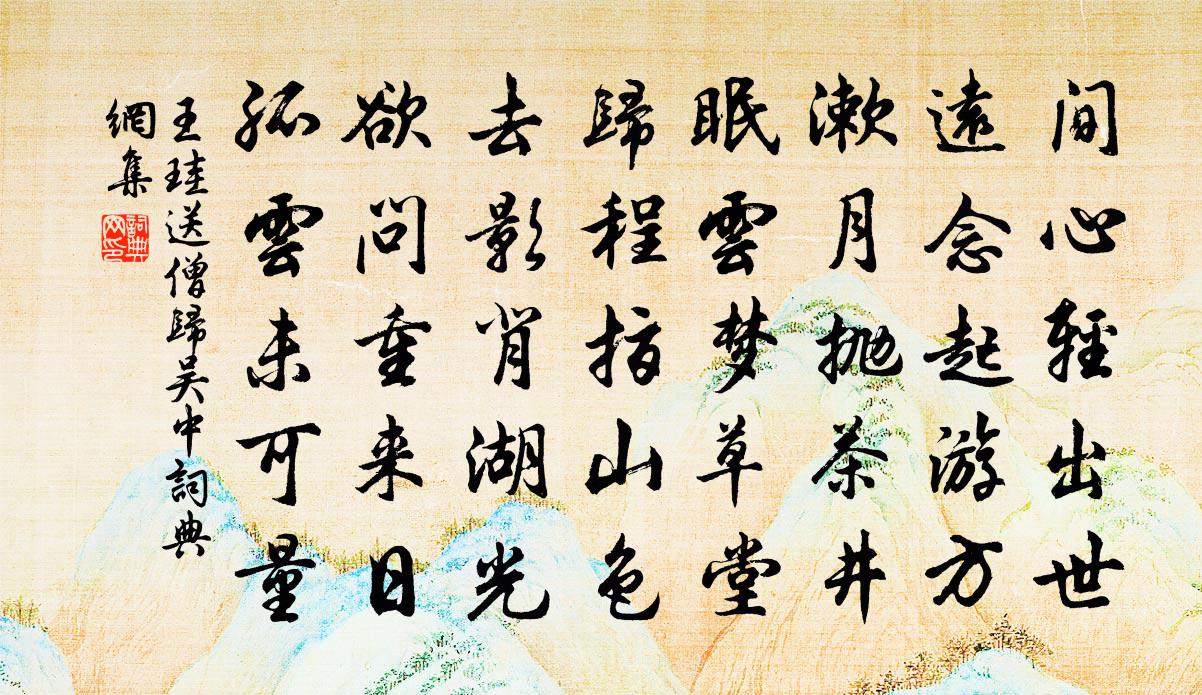 间心輕出世
遠念起游方
漱月抛茶井
眠雲梦草堂
歸程指山色
去影背湖光
欲问重来日
孤雲未可量
王珪送僧歸吴中詞典
網集
詞典
网印